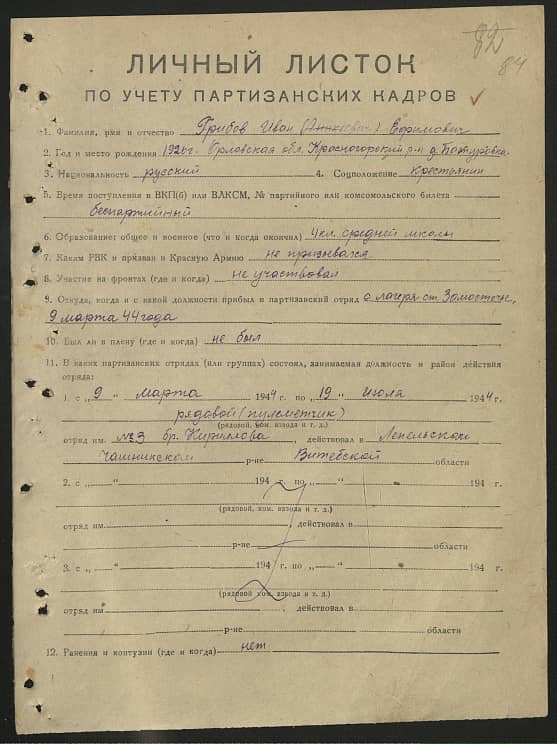 82
84
ЛИЧНЫЙ ЛИСТОК
ПО УЧЕТУ ПАРТИЗАНСКИХ КАДРОВ
1. Фамилия, имя и отчество Грибов Иван Ефимович
2. Год и место рождения 1926г. Орловская обл. Красногорский р-н д.
3. Национальность русский 4. Соцположение крестьянин
5. Время поступления в ВКП(б) или ВЛКСМ, № партийного или комсомольского билета
беспартийный
6. Образование: общее и военное (что и когда окончил) 4 кл. средней школы
7. Каким РВК и призван в Красную Армию не призвался
8. Участие на фронтах (где и когда) не участвовал
9. Откуда, когда и с какой должности прибыл в партизанский отряд с лагеря ст. Замосточье,
9 марта 44 года
10. Был ли в плену (где и когда) не был
11. В каких партизанских отрядах (или группах) состоял, занимаемая должность и район действия
отряда:
1. с „9“ марта 1944 г. по „19“ июля 1944 г.
рядовой (пулеметчик)
(рядовой, ком. взвода и т. д.)
отряд им. №3 бр. Кириллова, действовал в Лепельском
Чашникском р-не Витебской области
2. с „ “ 194 г. по „ “ 194 г.
(рядовой, ком. взвода и т. д.)
отряд им. , действовал в
р-не области
3. с „ “ 194 г. по „ “ 194 г.
(рядовой, ком. взвода и т. д.)
отряд им действовал в
р-не области
12. Ранения и контузии (где и когда) нет